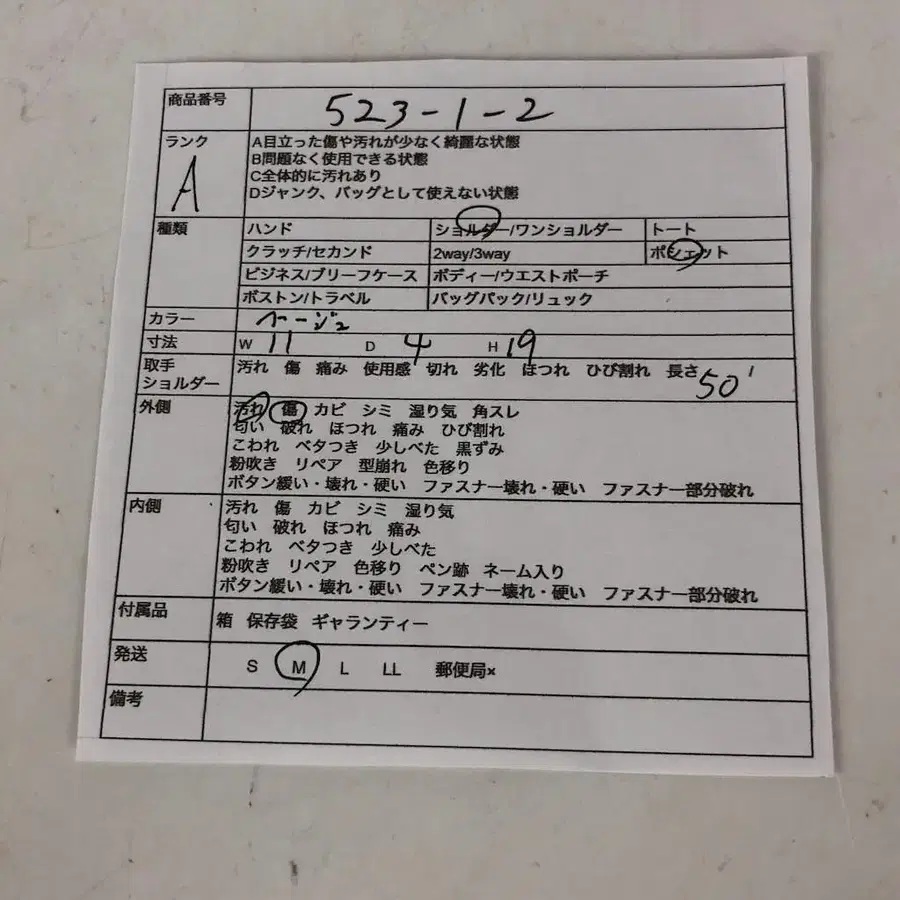 商品番号 523-1-2
ランク A
A目立った傷や汚れが少なく綺麗な状態
B問題なく使用できる状態
C全体的に汚れあり
Dジャンク、バッグとして使えない状態
種類 ハンド ショルダー/ワンショルダー トート
クラッチ/セカンド 2way/3way ポシェット
ビジネス/ブリーフケース ボディー/ウエストポーチ
ボストン/トラベル バッグパック/リュック
カラー ベージュ
寸法 W 11 D 4 H 19
取手 汚れ 傷 痛み 使用感 切れ 劣化 ほつれ ひび割れ 長さ 50
ショルダー
外側 汚れ 傷 カビ シミ 湿り気 角スレ
匂い 破れ ほつれ 痛み ひび割れ
こわれ ベタつき 少しべた 黒ずみ
粉吹き リペア 型崩れ 色移り
ボタン緩い・壊れ・硬い ファスナー壊れ・硬い ファスナー部分破れ
内側 汚れ 傷 カビ シミ 湿り気
匂い 破れ ほつれ 痛み
こわれ ベタつき 少しべた
粉吹き リペア 色移り ペン跡 ネーム入り
ボタン緩い・壊れ・硬い ファスナー壊れ・硬い ファスナー部分破れ
付属品 箱 保存袋 ギャランティー
発送 S M L LL 郵便局×
備考